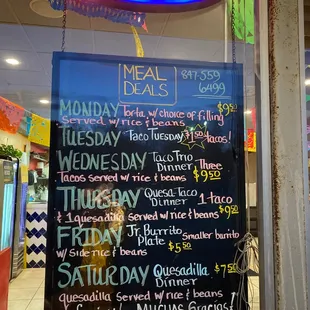 MEAL
DEALS
847-559
6499
MONDAY Torta w/ choice of filling
Served w/ rice & beans $9
TUESDAY Taco Tuesday $1 tacos
WEDNESDAY Taco Trio
Dinner Three
Tacos served w/ rice & beans $9.50
THURSDAY Quesa-Taco
Dinner 1 taco
& 1 quesadilla served w/ rice & beans $9
FRIDAY Jr. Burrito
Plate Smaller burrito
w/ side rice & beans $5.50
SATURDAY Quesadilla $7.50
Dinner
quesadilla Served w/ rice & beans
Muchas Gracias!